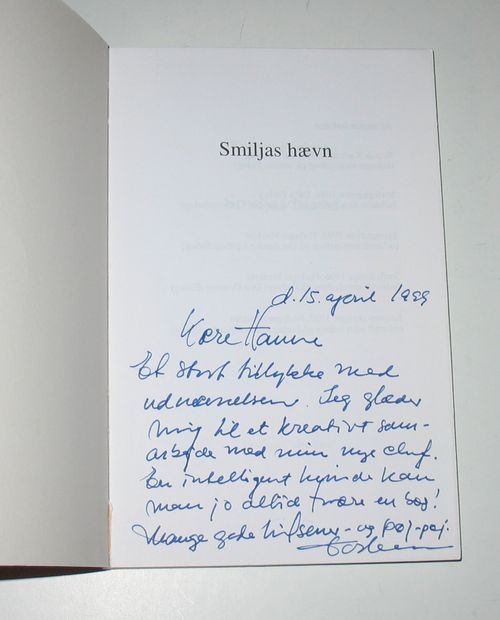 Smiljas hævn
d. 15. april 1999
Kære Hanne
Et stort tillykke med
udnævnelsen. Jeg glæder
mig til et kreativt sam-
arbejde med min nye chef.
En intelligent kvinde kan
man jo altid være en bog!
Mange gode hilsener - og poj-poj.